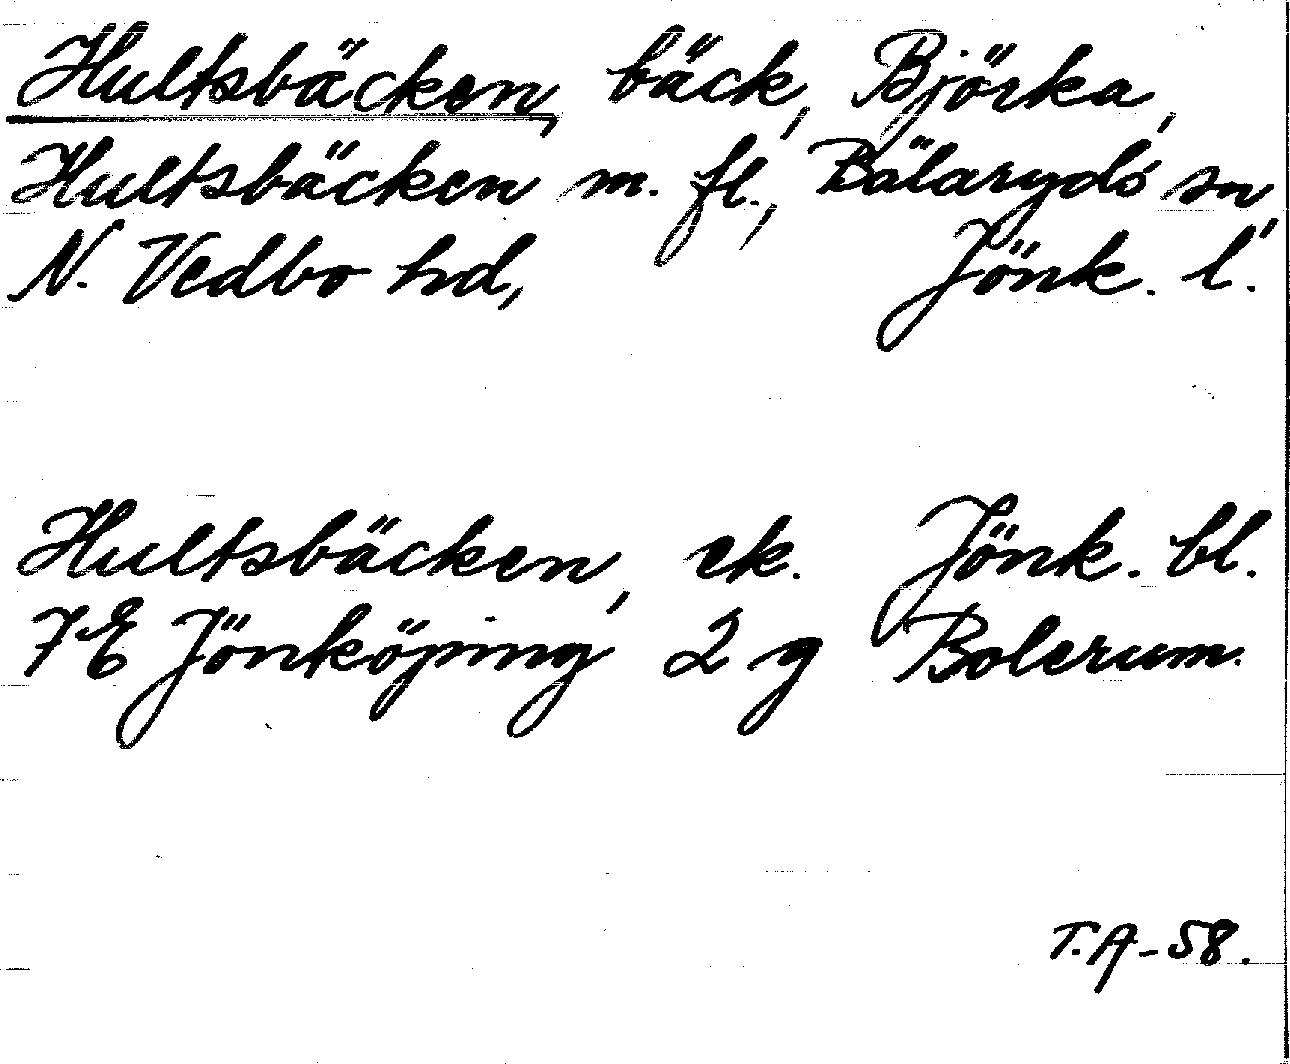 Hultsbäcken, bäck, Björka,
Hultsbäcken m. fl., Bälaryds sn,
N. Vedbo hd, Jönk. l.
Hultsbäcken, ek. Jönk. bl.
7E Jönköping 2 g Bolerum.
T.A-58.